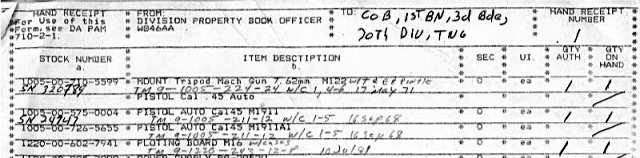 HAND RECEIPT FROM: TO: CoB, 1ST BN, 3d Bde, HAND RECEIPT
For Use of this DIVISION PROPERTY BOOK OFFICER NUMBER
Form, see DA PAM W846AA 70th DIV, TNG 1
710-2-1.
STOCK NUMBER ITEM DESCRIPTION SEC UI QTY QTY
a. b. AUTH ON HAND
1005-00-710-5599 MOUNT Tripod Mach Gun 7.62mm M122 0 ea 1 1
SN 320784 TM 9-1005-224-24 W/C 1,4 17 May 71
PISTOL Cal .45 Auto
1005-00-575-0004 PISTOL AUTO Cal45 M1911 0 ea 1 1
SN TM 9-1005-211-12 W/C 1-5 16 Sep 68
1005-00-726-5655 PISTOL AUTO Cal45 M1911A1 0 ea
TM 9-1005-211-12 W/C 1-5 16 Sep 68
1220-00-602-7941 PLOTING BOARD M16 0 ea 1 1